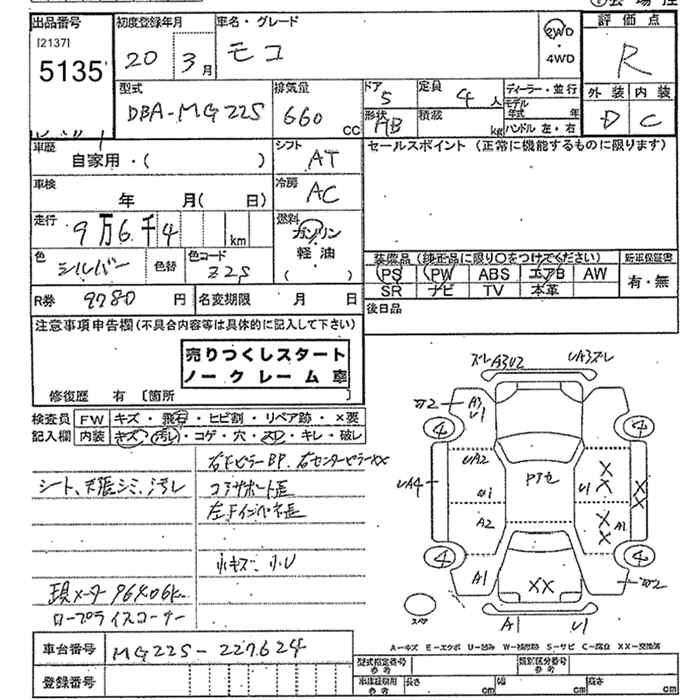 出品番号
[2137]
5135
初度登録年月
20 3月
車名・グレード
モコ
2WD
・
4WD
評価点
R
外装 内装
D C
型式
DBA-MG22S
排気量
660 cc
ドア
5
定員
4 人
形状
HB
積載
kg
ディーラー・並行
モデル年式 年
ハンドル 左・右
車歴
自家用・( )
シフト
AT
セールスポイント (正常に機能するものに限ります)
車検
年 月( 日)
冷房
AC
走行
9万6千4 km
燃料
ガソリン
軽油
( )
色
シルバー
色替
色コード
Z2S
装備品 (純正品に限り○をつけてください)
PS PW ABS エアB AW
SR ナビ TV 本革
新車保証書
有・無
R券 9780 円
名変期限 月 日
後日品
注意事項申告欄(不具合内容等は具体的に記入して下さい)
売りつくしスタート
ノークレーム車
修復歴 有 [箇所
検査員 FW キズ・飛石・ヒビ割・リペア跡・×要
記入欄 内装 キズ・汚レ・コゲ・穴・スレ・キレ・破レ
右Fピラー BP. 右センターピラーXX
シート、天張シミ、汚レ
コアサポート歪
左Fインパネ歪
小キズ 小U
現メーター 96406km
ロープライスコーナー
ズレ A3U2
UA3 ズレ
A3
U1
4
4
UA2
UA4
U1
A2
U1
X
X
X
X
X
X
A1
4
4
A1
XX
スペア
A1
U1
A－キズ E－エクボ U－凹み W－補修跡 S－サビ C－腐食 XX－交換済
車台番号 MG22S-227624
登録番号
型式指定番号
参考
類別区分番号
参考
車検証寸用
参考
長さ cm
幅 cm
高さ cm